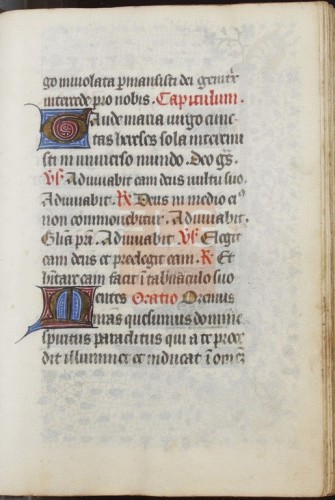 go inviolata p̄mansisti dei genitr̄
intercede pro nobis. Capitulum.
Gaude maria virgo cunc
tas hereses sola interemi
sti in universo mundo. Deo gr̄s.
V̄s Adiuvabit eam deus vultu suo.
Adiuvabit. R̄x Deus in medio ei⁹
non commovebitur. Adiuvabit.
Gl̄ia pr̄i. Adiuvabit V̄s Elegit
eam deus et preelegit eam. R̄ Et
h̄itare eam facit ī tab̄naculo suo
Oremus Oratio
Mentes n̄ras quesumus domine
spiritus paraclitus qui a te proce
dit illuminet et inducat ī om̄ē